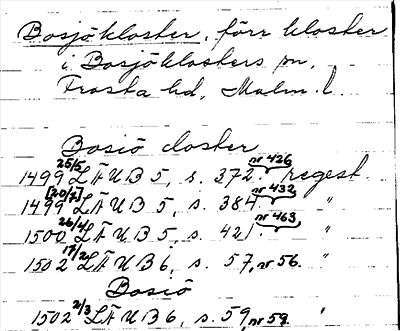 Bosjökloster, förr kloster
i Bosjöklosters sn,
Frosta hd, Malm. l.
Bosiö closter
1499 25/5 LÄUB 5, s. 372. nr 426 regest.
1499 [20/7] LÄUB 5, s. 384. nr 432 "
1500 26/4 LÄUB 5, s. 421. nr 463 "
1502 17/2 LÄUB 6, s. 57, nr 56. "
Bosiö
1502 2/3 LÄUB 6, s. 59, nr 59.